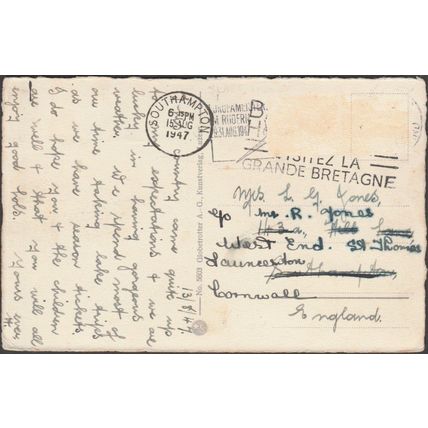 13/8/47
country came quite up
to my expectations & we are
lucky in having gorgeous
weather. We spend most of
our time taking lake trips
as we have season tickets.
I do hope you & the children
are well & that you will all
enjoy good hols.
Yours ever
No. 5603 Globetrotter A. G., Kunstverlag,
SOUTHAMPTON
6-15PM
15 AUG
1947
VISITEZ LA
GRANDE BRETAGNE
Mrs. L. G. Jones,
c/o Mr. R. Jones
West End. St. Thomas
Launceston
Cornwall
England.